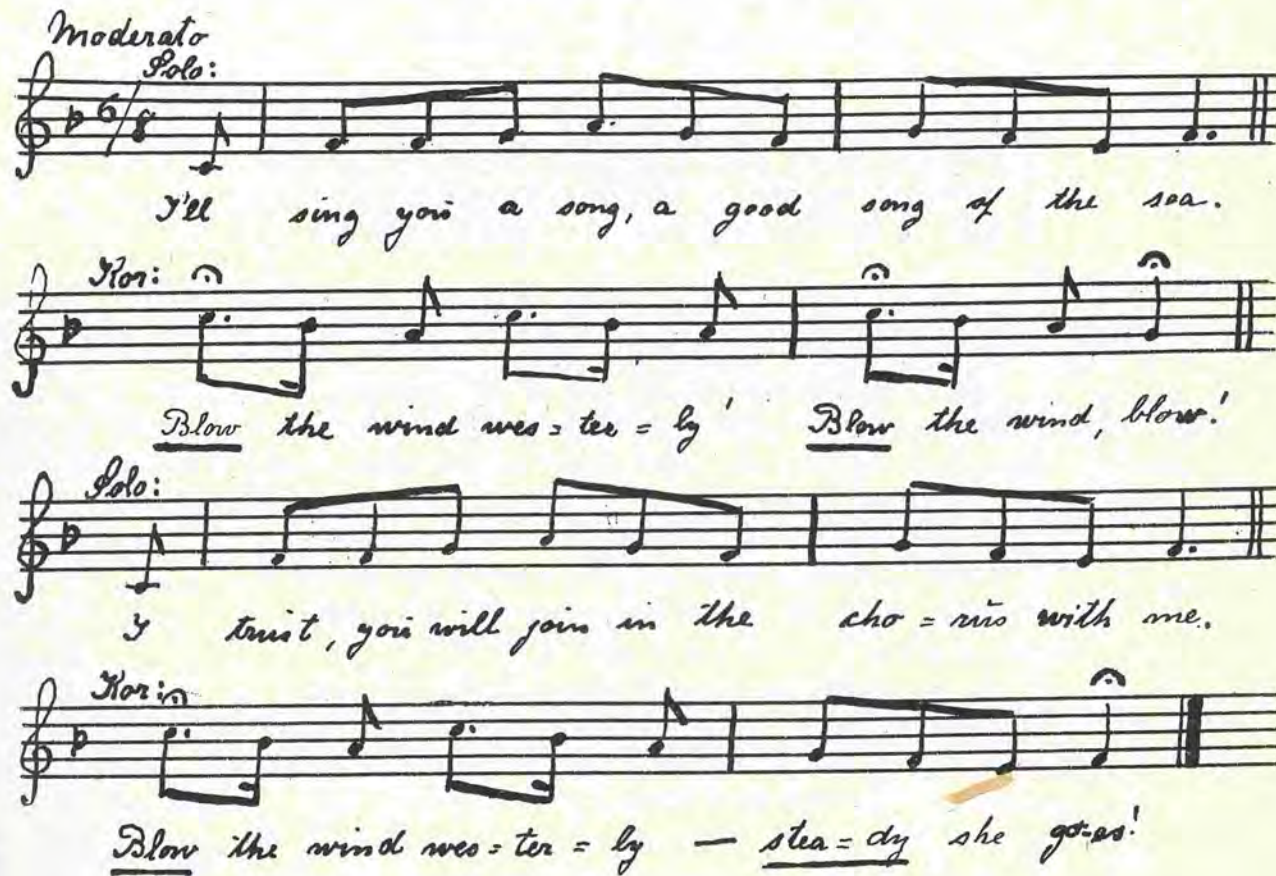 Moderato
Solo:
6/8
I'll sing you a song, a good song of the sea.
Kor:
Blow the wind wes=ter=ly! Blow the wind, blow!
Solo:
I trust, you will join in the cho=rus with me.
Kor:
Blow the wind wes=ter=ly — stea=dy she go=es!